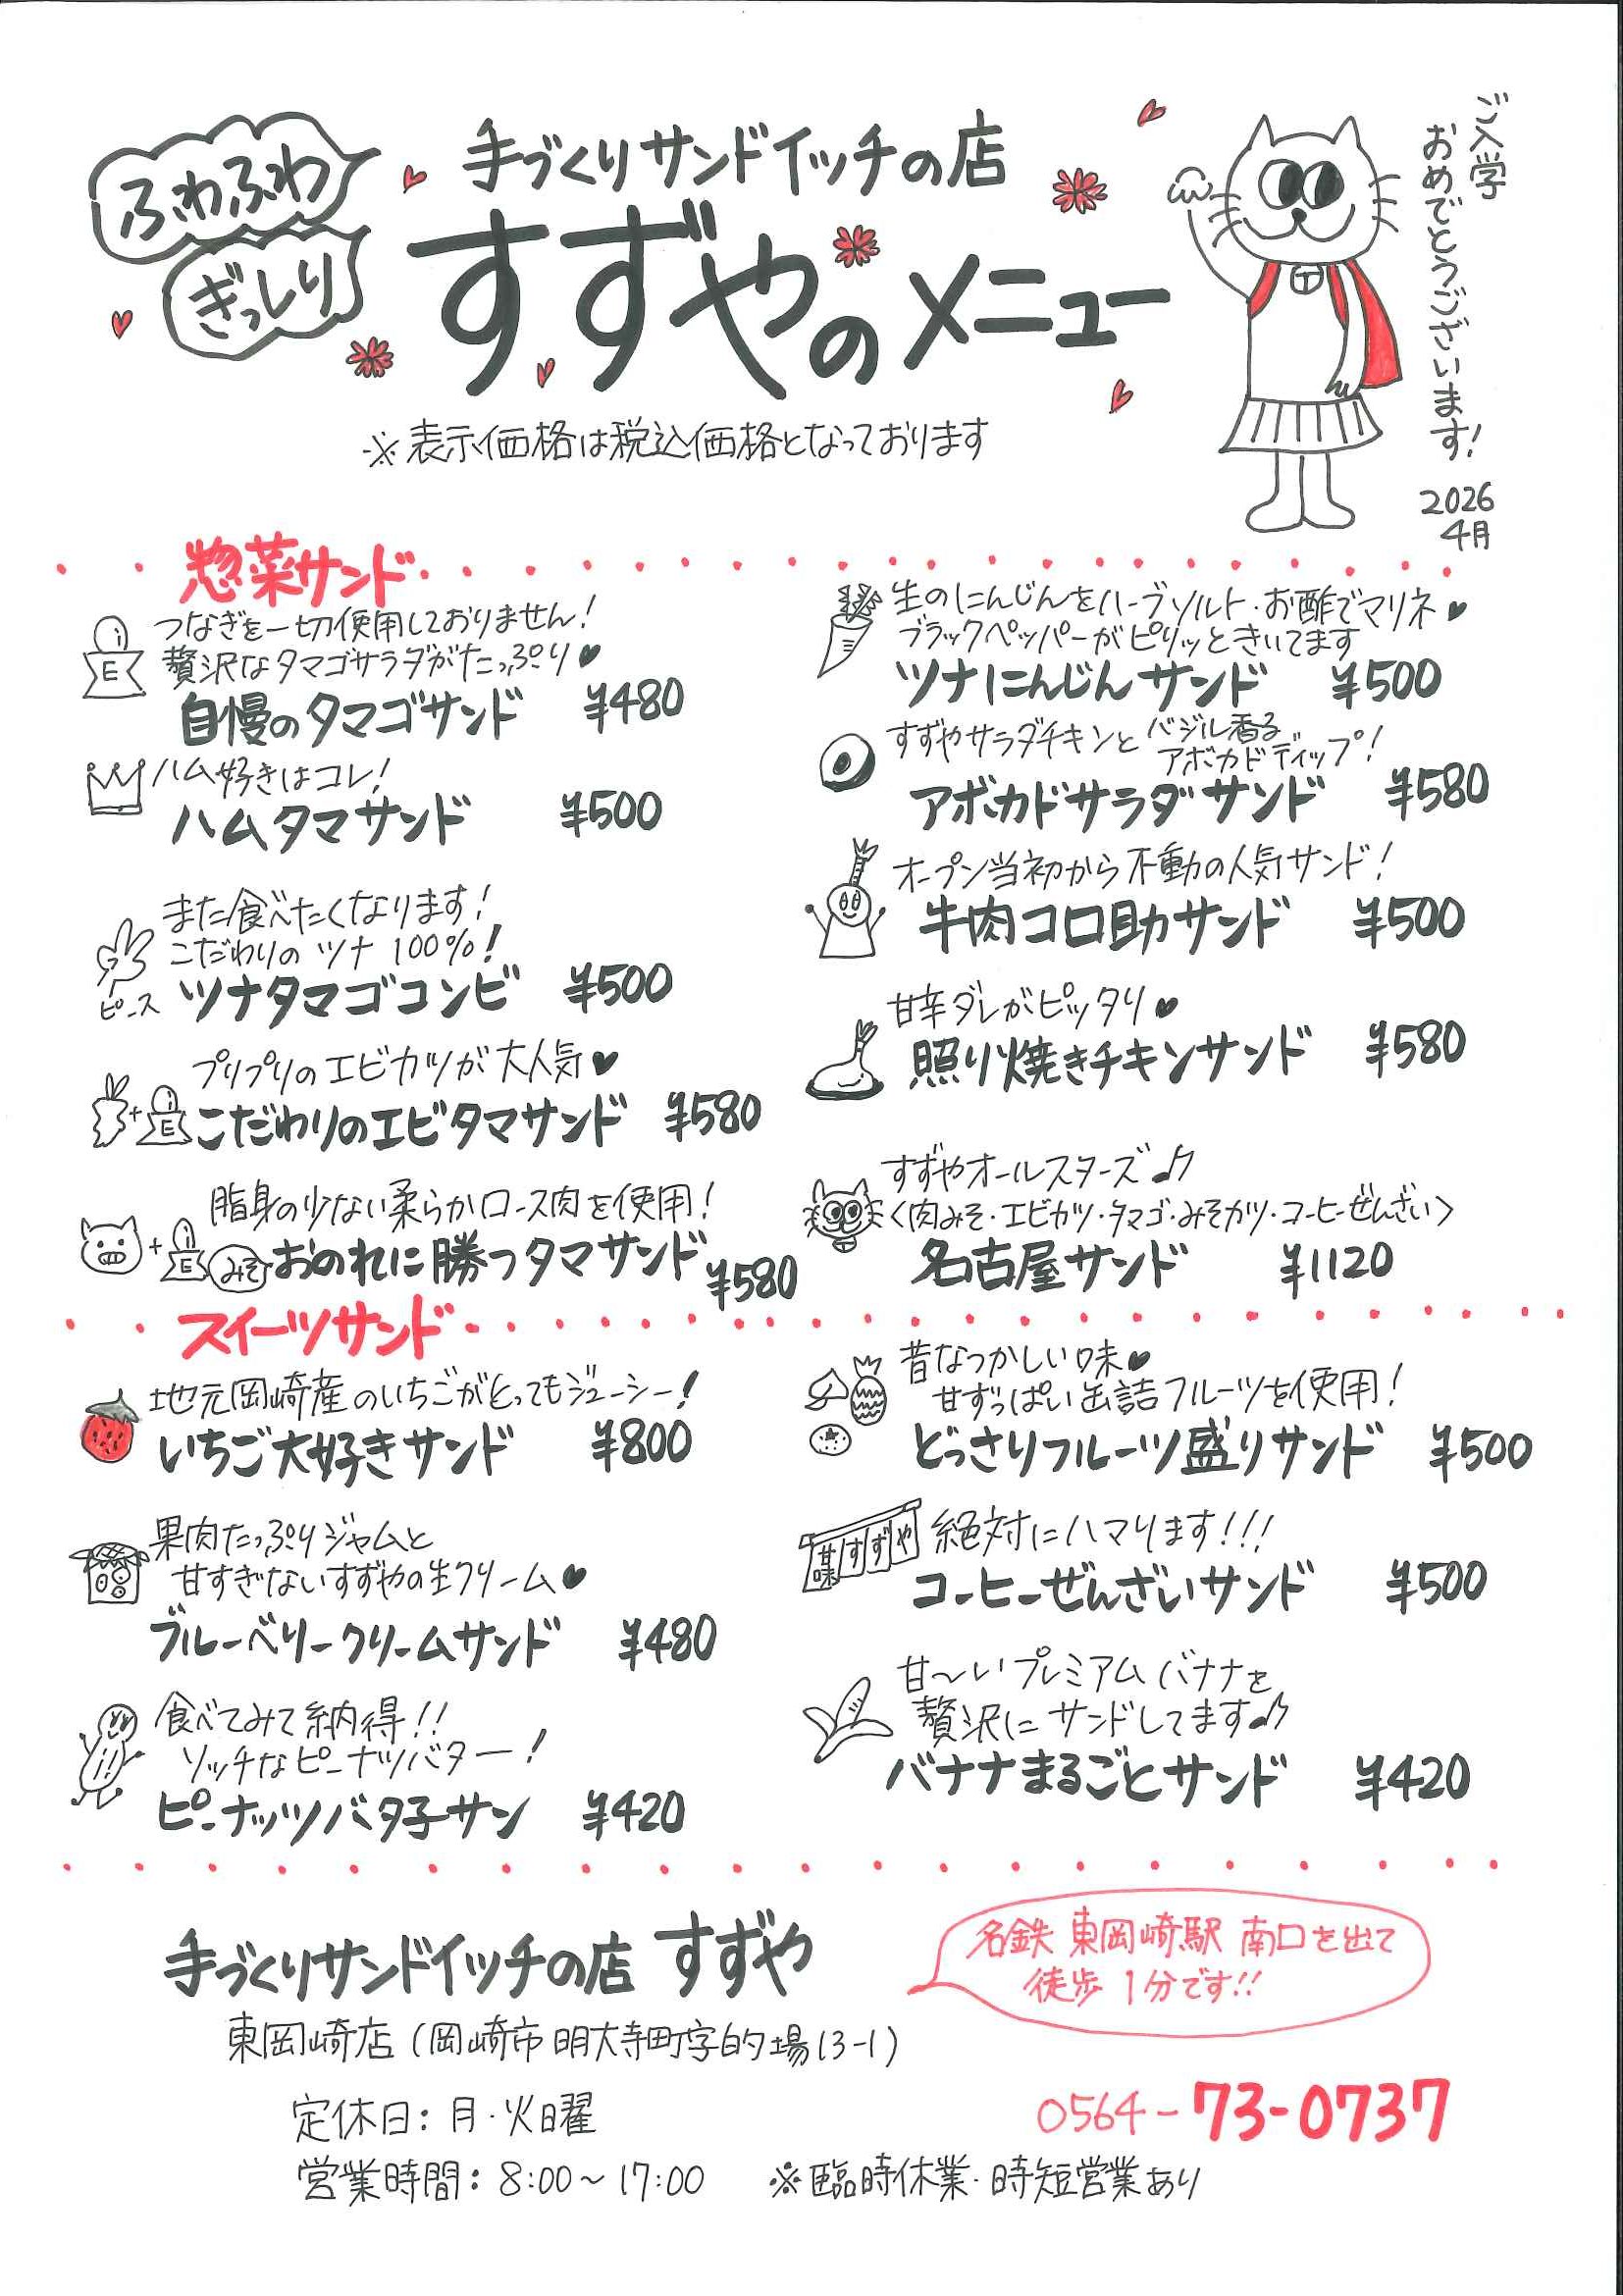 ふわふわ
ぎっしり
手づくりサンドイッチの店
すずやのメニュー
※表示価格は税込価格となっております
ご入学
おめでとうございます!
2026
4月
惣菜サンド
つなぎを一切使用しておりません!
贅沢なタマゴサラダがたっぷり♥
E
自慢のタマゴサンド ¥480
ハム好きはコレ!
ハムタマサンド ¥500
また食べたくなります!
こだわりのツナ100%!
ピース
ツナタマゴコンビ ¥500
プリプリのエビカツが大人気♥
+
E
こだわりのエビタマサンド ¥580
脂身の少ない柔らかロース肉を使用!
+
E
みそ
おのれに勝つタマサンド ¥580
生のにんじんをハーブソルト・お酢でマリネ♥
ブラックペッパーがピリッときいてます
ツナにんじんサンド ¥500
すずやサラダチキンとバジル香る
アボカドディップ!
アボカドサラダサンド ¥580
オープン当初から不動の人気サンド!
牛肉コロ助サンド ¥500
甘辛ダレがピッタリ♥
照り焼きチキンサンド ¥580
すずやオールスターズ♪
<肉みそ・エビカツ・タマゴ・みそカツ・コーヒーぜんざい>
名古屋サンド ¥1120
スイーツサンド
地元岡崎産のいちごがとってもジューシー!
いちご大好きサンド ¥800
果肉たっぷりジャムと
甘すぎないすずやの生クリーム♥
ブルーベリークリームサンド ¥480
食べてみて納得!!
ソッチなピーナツバター!
ピーナッツバタ子サン ¥420
昔なつかしい味♥
甘ずっぱい缶詰フルーツを使用!
どっさりフルーツ盛りサンド ¥500
甘味すずや
絶対にハマります!!!
コーヒーぜんざいサンド ¥500
甘〜いプレミアムバナナを
贅沢にサンドしてます♪
バナナまるごとサンド ¥420
手づくりサンドイッチの店 すずや
名鉄 東岡崎駅 南口を出て
徒歩1分です!!
東岡崎店(岡崎市明大寺町字的場13-1)
定休日:月・火曜
0564-73-0737
営業時間:8:00〜17:00 ※臨時休業・時短営業あり